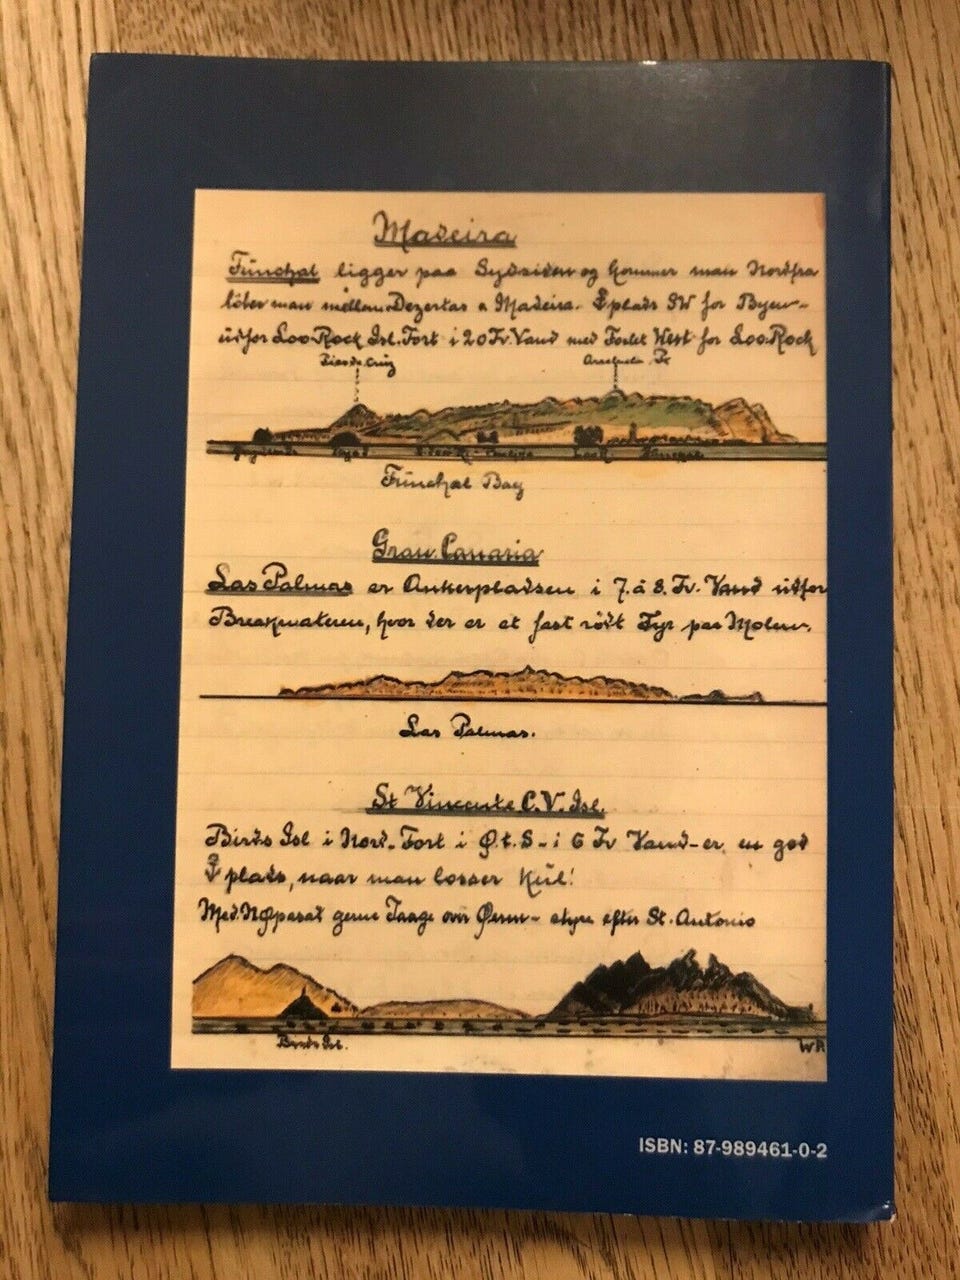 Madeira
Funchal ligger paa Sydsiden og kommer man Nordfra
löber man mellem Dezertas & Madeira. ⚓plads SW for Byen-
udfor Loo-Rock Isl. Fort i 20 Fv. Vand med Fortet West for Loo-Rock
Pico da Cruz
Funchal Bay
Gran Canaria
Las Palmas er Ankerpladsen i 7. à 8. Fv. Vand udfor
Breakwateren, hvor der er et fast rödt Fyr paa Molen.
Las Palmas.
St Vincente C.V. Isl.
Birds Isl i Nord. Fort i Ø.t.S - i 6 Fv Vand - er en god
⚓plads, naar man losser Kul!
Med NØpasat gerne Taage over Øerne - styre efter St. Antonio
Birds Isl.
ISBN: 87-989461-0-2